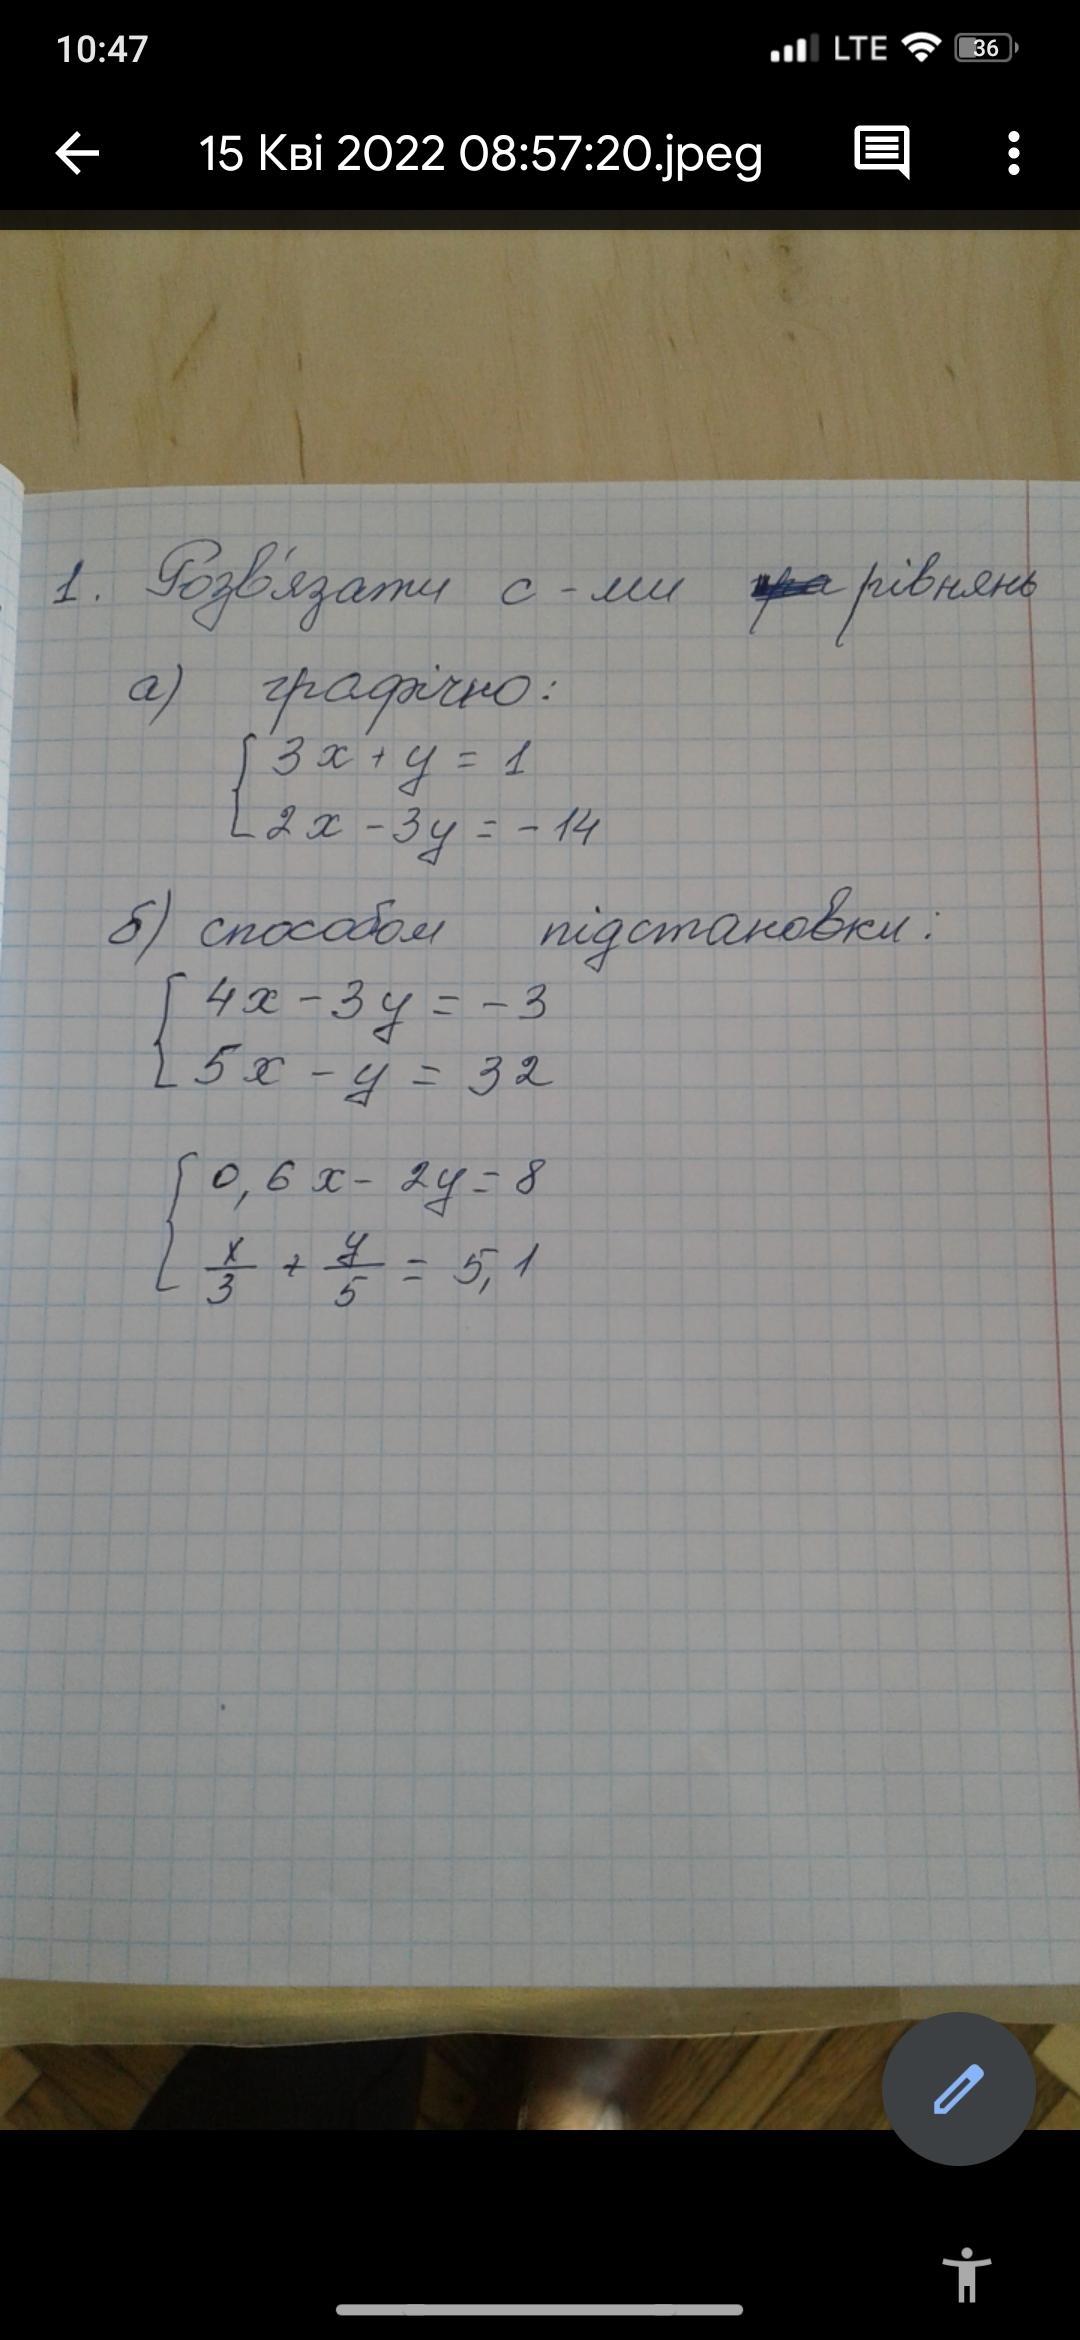 10:47 LTE 36
15 Кві 2022 08:57:20.jpeg
1. Розв'язати с-ми рівнянь
а) графічно:
3x + y = 1
2x - 3y = -14
б) способом підстановки:
4x - 3y = -3
5x - y = 32
0,6x - 2y = 8
x/3 + y/5 = 5,1